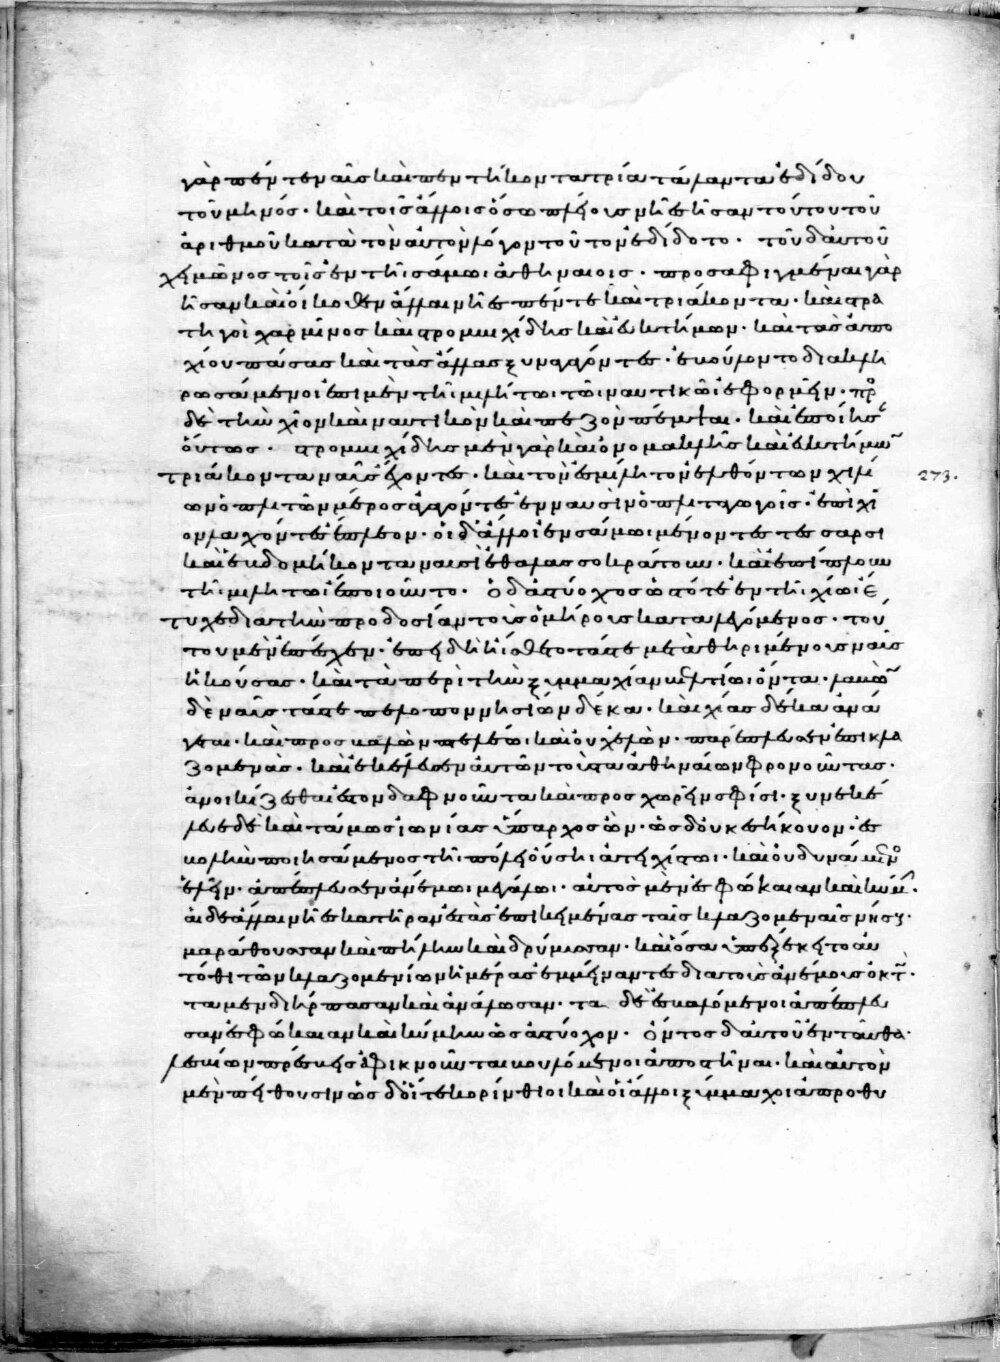 γὰρ πέντε ναῦς καὶ πεντήκοντα τρία τάλαντα ἐδίδου
τοῦ μηνός· καὶ τοῖς ἄλλοις ὅσω πλείους νῆες ἦσαν τούτου τοῦ
ἀριθμοῦ κατὰ τὸν αὐτὸν λόγον τοῦτον ἐδίδοτο· τοῦ δ' αὐτοῦ
χειμῶνος τοῖς ἐν τῆι σάμωι ἀθηναίοις· προσαφιγμέναι γὰρ
ἦσαν καὶ οἴκοθεν ἄλλαι νῆες πέντε καὶ τριάκοντα· καὶ στρα
τηγοὶ χαρμῖνος καὶ στρομβιχίδης καὶ εὐκτήμων· καὶ τὰς ἀπὸ
χίου πάσας καὶ τὰς ἄλλας ξυναγαγόντες· ἐβούλοντο διακλη
ρωσάμενοι ἐπὶ μὲν τῆι μιλήτωι τῶι ναυτικῶι ἐφορμεῖν· πρὸς
δὲ τὴν χίον καὶ ναυτικὸν καὶ πεζὸν πέμψαι· καὶ ἐποίησαν
οὕτως· στρομβιχίδης μὲν γὰρ καὶ ὀνομακλῆς καὶ εὐκτήμων
τριάκοντα ναῦς ἔχοντες· καὶ τῶν ἐς μίλητον ἐλθόντων χιλί
ων ὁπλιτῶν μέρος ἄγοντες ἐν ναυσὶν ὁπλιταγωγοῖς· ἐπὶ χῖ
ον λαχόντες ἔπλεον· οἱ δ' ἄλλοι ἐν σάμωι μένοντες τέσσαρσι
καὶ ἑβδομήκοντα ναυσὶ ἐθαλασσοκράτουν· καὶ ἐπίπλουν
τῆι μιλήτωι ἐποιοῦντο· ὁ δ' ἀστύοχος ὡς τότε ἐν τῆι χίωι ἔ
τυχε διὰ τὴν προδοσίαν τοὺς ὁμήρους καταλεγόμενος· τού
του μὲν ἐπέσχεν· ἐπειδὴ ἤισθετο τάς τε μετὰ θηριμένους ναῦς
ἡκούσας· καὶ τὰ περὶ τὴν ξυμμαχίαν βελτίω ὄντα· λαβὼν
δὲ ναῦς τάς τε πελοποννησίων δέκα· καὶ χίας δέκα ἀνά
γεται· καὶ προσβαλὼν πτελεῶι καὶ οὐχ ἑλὼν· παρέπλευσεν ἐπὶ κλα
ζομενὰς· καὶ ἐκέλευεν αὐτῶν τοὺς τὰ ἀθηναίων φρονοῦντας·
ἀνοικίζεσθαι ἐς τὸν δαφνοῦντα καὶ προσχωρεῖν σφίσι· ξυνεκέ
λευε δὲ καὶ τάμως ἰωνίας ὕπαρχος ὤν· ὡς δ' οὐκ ἐσήκουον· ἐσ
βολὴν ποιησάμενος τῆι πόλει οὔσηι ἀτειχίστωι· καὶ οὐ δυνάμενος
ἑλεῖν· ἀπέπλευσεν ἀνέμωι μεγάλωι· αὐτὸς μὲν ἐς φώκαιαν καὶ κύμην·
αἱ δὲ ἄλλαι νῆες κατῆραν ἐς τὰς ἐπικειμένας ταῖς κλαζομεναῖς νήσους·
μαράθουσαν καὶ πήλην καὶ δρύμουσαν· καὶ ὅσα ὑπεξέκειτο αὐ
τόθι τῶν κλαζομενίων ἡμέρας ἐμμείναντες διὰ τοὺς ἀνέμους ὀκτώ·
τὰ μὲν διήρπασαν καὶ ἀνάλωσαν· τὰ δὲ ἐσβαλόμενοι ἀπέπλευ
σαν ἐς φώκαιαν καὶ κύμην ὡς ἀστύοχον· ὄντος δ' αὐτοῦ ἐνταῦθα·
λεσβίων πρέσβεις ἀφικνοῦνται βουλόμενοι ἀποστῆναι· καὶ αὐτὸν
μὲν πείθουσιν ὡς δ' οἵ τε κορίνθιοι καὶ οἱ ἄλλοι ξύμμαχοι ἀπρόθυ
273.